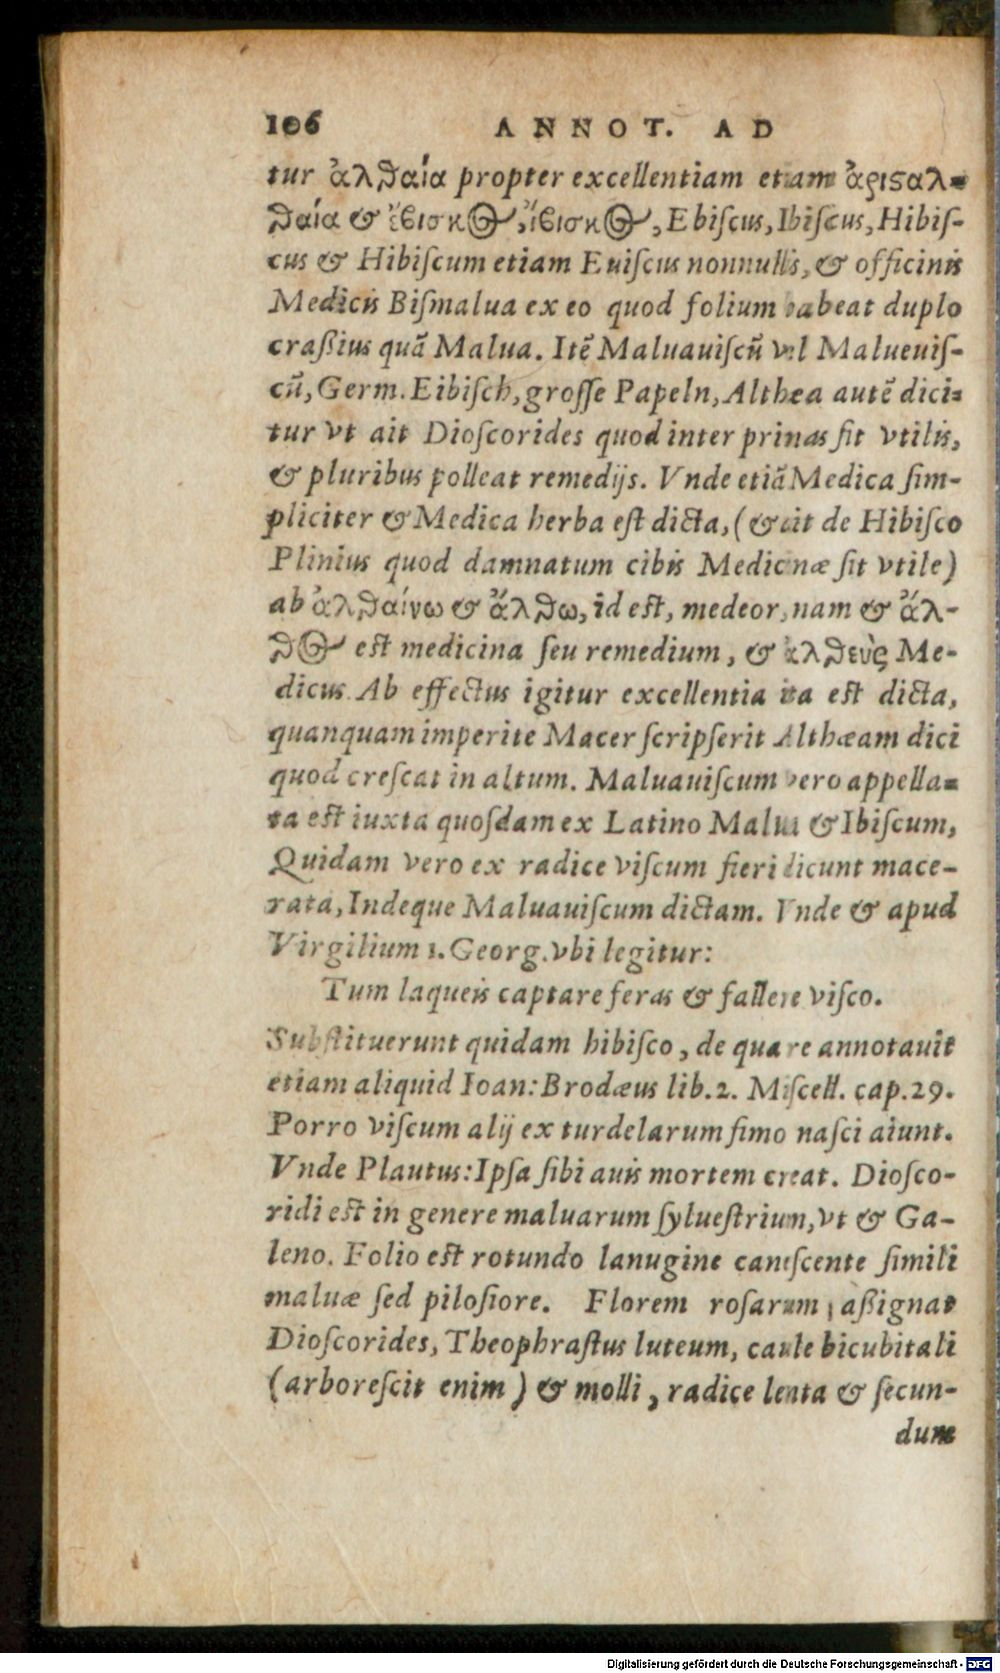 106 ANNOT. AD
tur ἀλθαία propter excellentiam etiam ἀριςαλ=
θαία & ἔβισκος, ἴβισκος, Ebiſcus, Ibiſcus, Hibiſ-
cus & Hibiſcum etiam Euiſcus nonnullis, & officinis
Medicis Biſmalua ex eo quod folium habeat duplo
craßius quã Malua. Itẽ Maluauiſcũ vel Malueuiſ-
cũ, Germ. Eibiſch, groſſe Papeln, Althea autẽ dici=
tur vt ait Dioſcorides quod inter primas ſit vtilis,
& pluribus polleat remedijs. Vnde etiã Medica ſim-
pliciter & Medica herba eſt dicta, (& ait de Hibiſco
Plinius quod damnatum cibis Medicinæ ſit vtile)
ab ἀλθαίνω & ἄλθω, id eſt, medeor, nam & ἄλ-
θος eſt medicina ſeu remedium, & ἀλθεὺς Me-
dicus. Ab effectus igitur excellentia ita eſt dicta,
quanquam imperite Macer ſcripſerit Althæam dici
quod creſcat in altum. Maluauiſcum vero appella=
ta eſt iuxta quoſdam ex Latino Malua & Ibiſcum,
Quidam vero ex radice viſcum fieri dicunt mace-
rata, Indeque Maluauiſcum dictam. Vnde & apud
Virgilium 1. Georg. vbi legitur:
Tum laqueis captare feras & fallere viſco.
Subſtituerunt quidam hibiſco, de qua re annotauit
etiam aliquid Ioan: Brodæus lib. 2. Miſcell. cap. 29.
Porro viſcum alij ex turdelarum fimo naſci aiunt.
Vnde Plautus: Ipſa ſibi auis mortem creat. Dioſco-
ridi eſt in genere maluarum ſylueſtrium, vt & Ga-
leno. Folio eſt rotundo lanugine caneſcente ſimili
maluæ ſed piloſiore. Florem roſarum aßignat
Dioſcorides, Theophraſtus luteum, caule bicubitali
(arboreſcit enim) & molli, radice lenta & ſecun-
dum
Digitalisierung gefördert durch die Deutsche Forschungsgemeinschaft - DFG